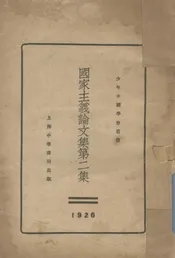 少年中國學會叢書
國家主義論文集第二集
上海中華書局印行
1926